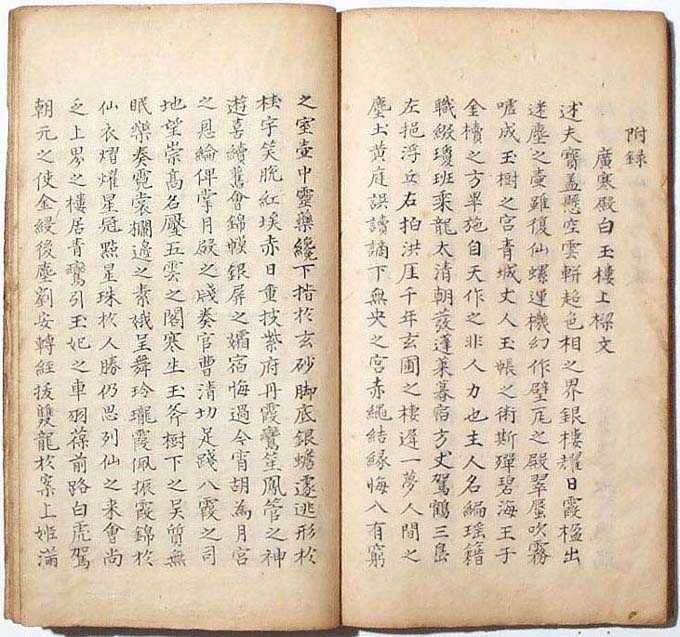 附録
廣寒殿白玉樓上樑文
述夫寶盖懸空雲軿超色相之界銀樓耀日霞楹出
迷塵之壺雖復仙螺運機幻作璧瓦之殿翠蜃吹霧
噓成玉樹之宮青城丈人玉帳之術斯殫碧海王子
金櫝之方畢施自天作之非人力也主人名編瑤籍
職綴瓊班乘龍太清朝發蓬萊暮宿方丈駕鶴三島
左挹浮丘右拍洪厓千年玄圃之棲遲一夢人間之
塵土黃庭誤讀謫下無央之宮赤繩結緣悔入有窮
之室壺中靈藥纔下指於玄砂脚底銀蟾遽逃形於
桂宇笑脫紅埃赤日重披紫府丹霞鸞笙鳳管之神
遊喜續舊會錦幙銀屏之孀宿悔過今宵胡為月宮
之恩綸俾掌月殿之牋奏官曹清切足踐八霞之司
地望崇高名壓五雲之閣寒生玉斧樹下之吳質無
眠樂奏霓裳欄邊之素娥呈舞玲瓏霞佩振霞錦於
仙衣熠燿星冠點星珠於人勝仍思列仙之来會尚
乏上界之樓居青鸞引玉妃之車羽葆前路白虎駕
朝元之使金綅後塵劉安轉經拔雙龍於案上姬滿